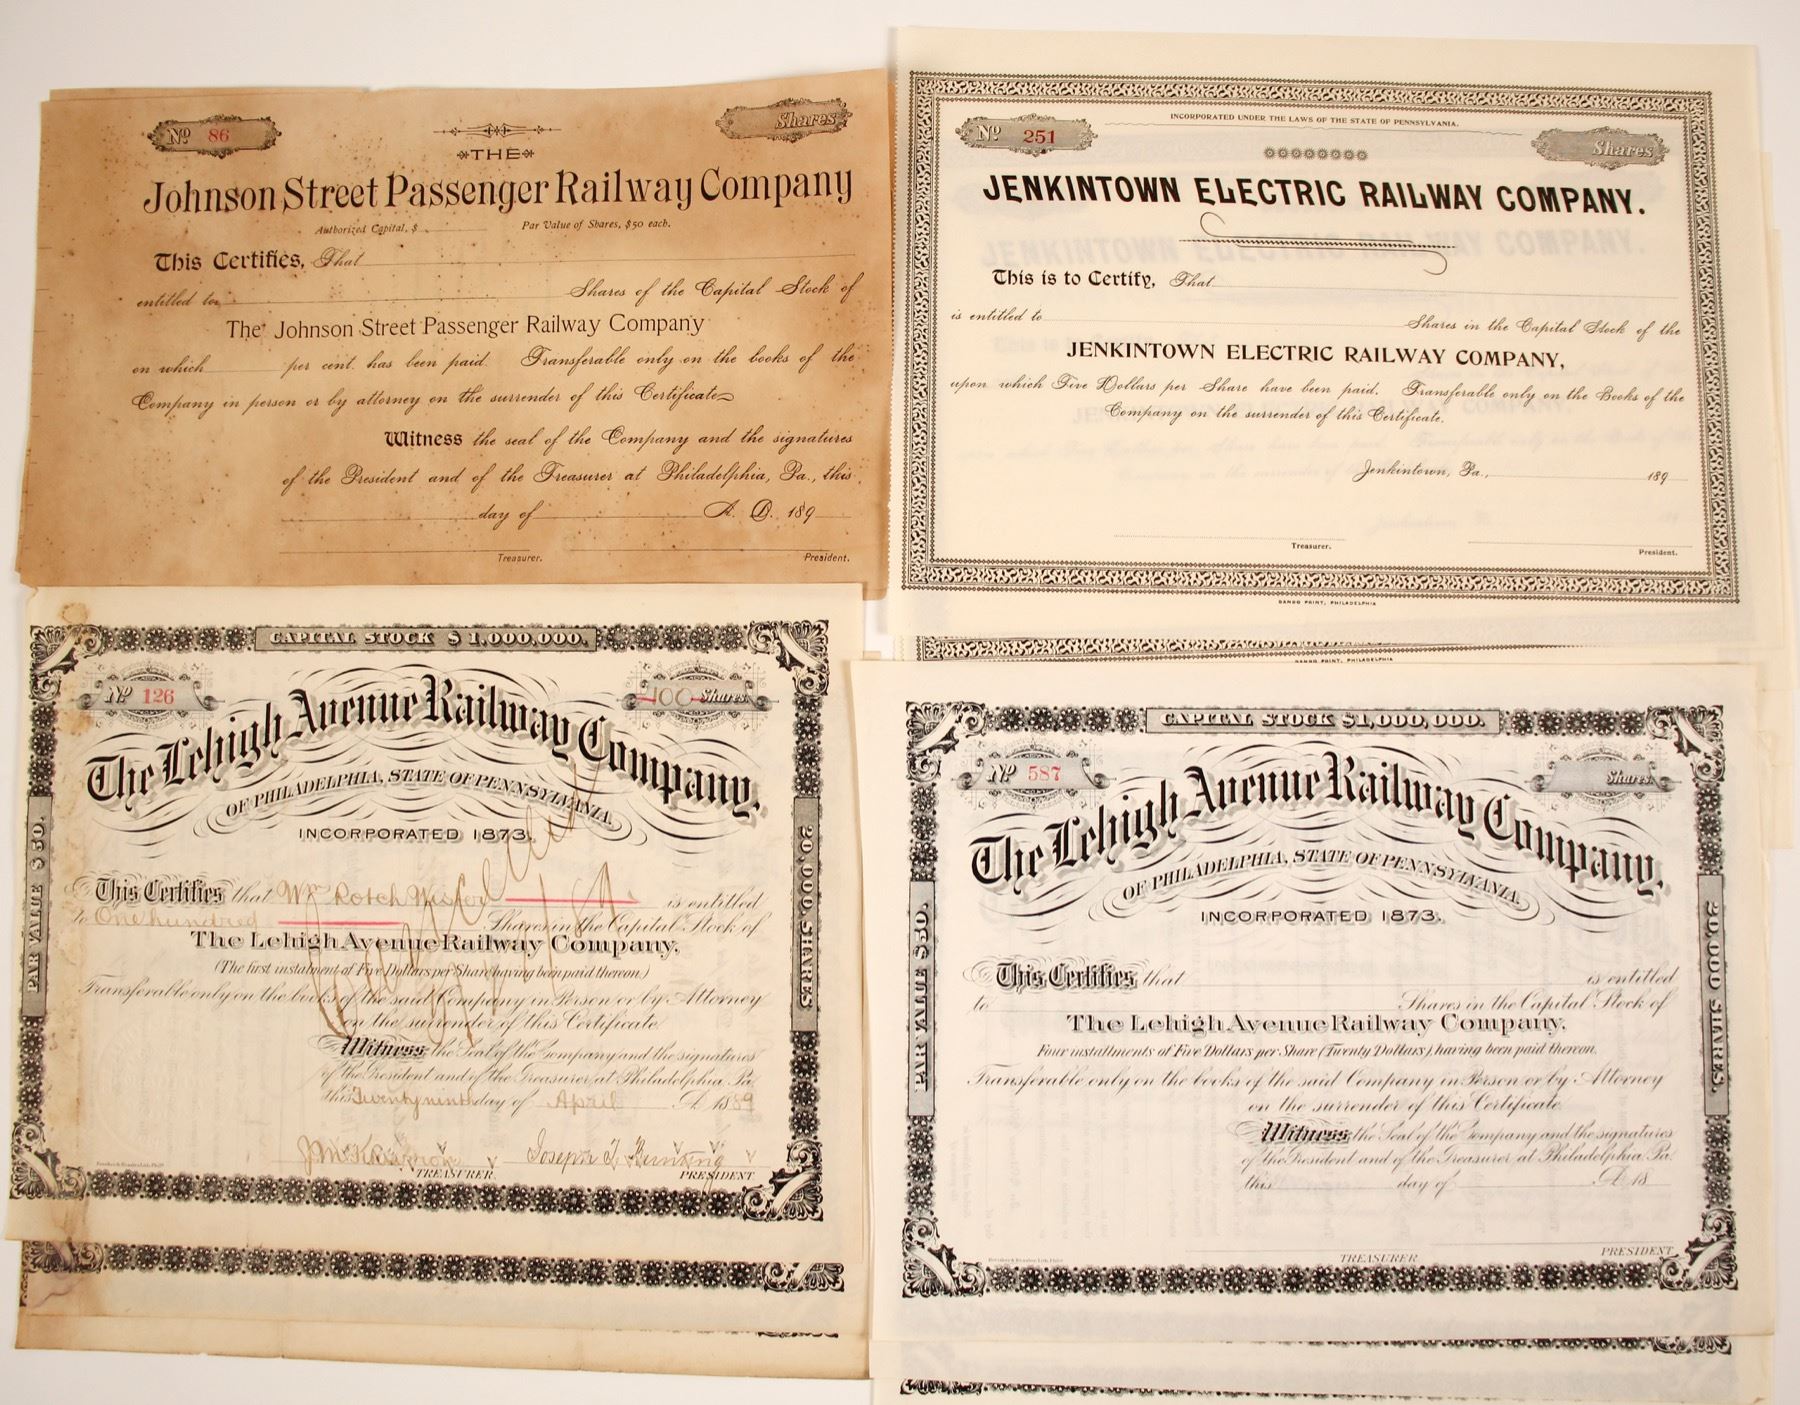 No 86
Shares
THE
Johnson Street Passenger Railway Company
Authorized Capital, $ Par Value of Shares, $50 each.
This Certifies, That
entitled to Shares of the Capital Stock of
The Johnson Street Passenger Railway Company
on which per cent. has been paid. Transferable only on the books of the
Company in person or by attorney on the surrender of this Certificate
Witness the seal of the Company and the signatures
of the President and of the Treasurer at Philadelphia, Pa., this
day of A. D. 189
Treasurer. President.
INCORPORATED UNDER THE LAWS OF THE STATE OF PENNSYLVANIA.
No 251
Shares
JENKINTOWN ELECTRIC RAILWAY COMPANY.
This is to Certify, That
is entitled to Shares in the Capital Stock of the
JENKINTOWN ELECTRIC RAILWAY COMPANY,
upon which Five Dollars per Share have been paid. Transferable only on the Books of the
Company on the surrender of this Certificate.
Jenkintown, Pa., 189
Treasurer. President.
PRINT, PHILADELPHIA
PRINT, PHILADELPHIA
CAPITAL STOCK $1,000,000.
No 126
100 Shares
The Lehigh Avenue Railway Company,
OF PHILADELPHIA, STATE OF PENNSYLVANIA.
INCORPORATED 1873.
PAR VALUE $50.
20,000 SHARES
This Certifies that Wm Rotch Wister is entitled
to One hundred Shares in the Capital Stock of
The Lehigh Avenue Railway Company,
(The first instalment of Five Dollars per Share having been paid thereon.)
Transferable only on the books of the said Company in Person or by Attorney
on the surrender of this Certificate
Witness the Seal of the Company and the signatures
of the President and of the Treasurer at Philadelphia Pa
this Twenty ninth day of April A 1889
Cancelled
Joseph
TREASURER. PRESIDENT
CAPITAL STOCK $1,000,000.
No 587
Shares
The Lehigh Avenue Railway Company,
OF PHILADELPHIA, STATE OF PENNSYLVANIA.
INCORPORATED 1873.
PAR VALUE $50.
20,000 SHARES.
This Certifies that is entitled
to Shares in the Capital Stock of
The Lehigh Avenue Railway Company,
Four installments of Five Dollars per Share (Twenty Dollars) having been paid thereon.
Transferable only on the books of the said Company in Person or by Attorney
on the surrender of this Certificate
Witness the Seal of the Company and the signatures
of the President and of the Treasurer at Philadelphia Pa
this day of A 18
TREASURER PRESIDENT